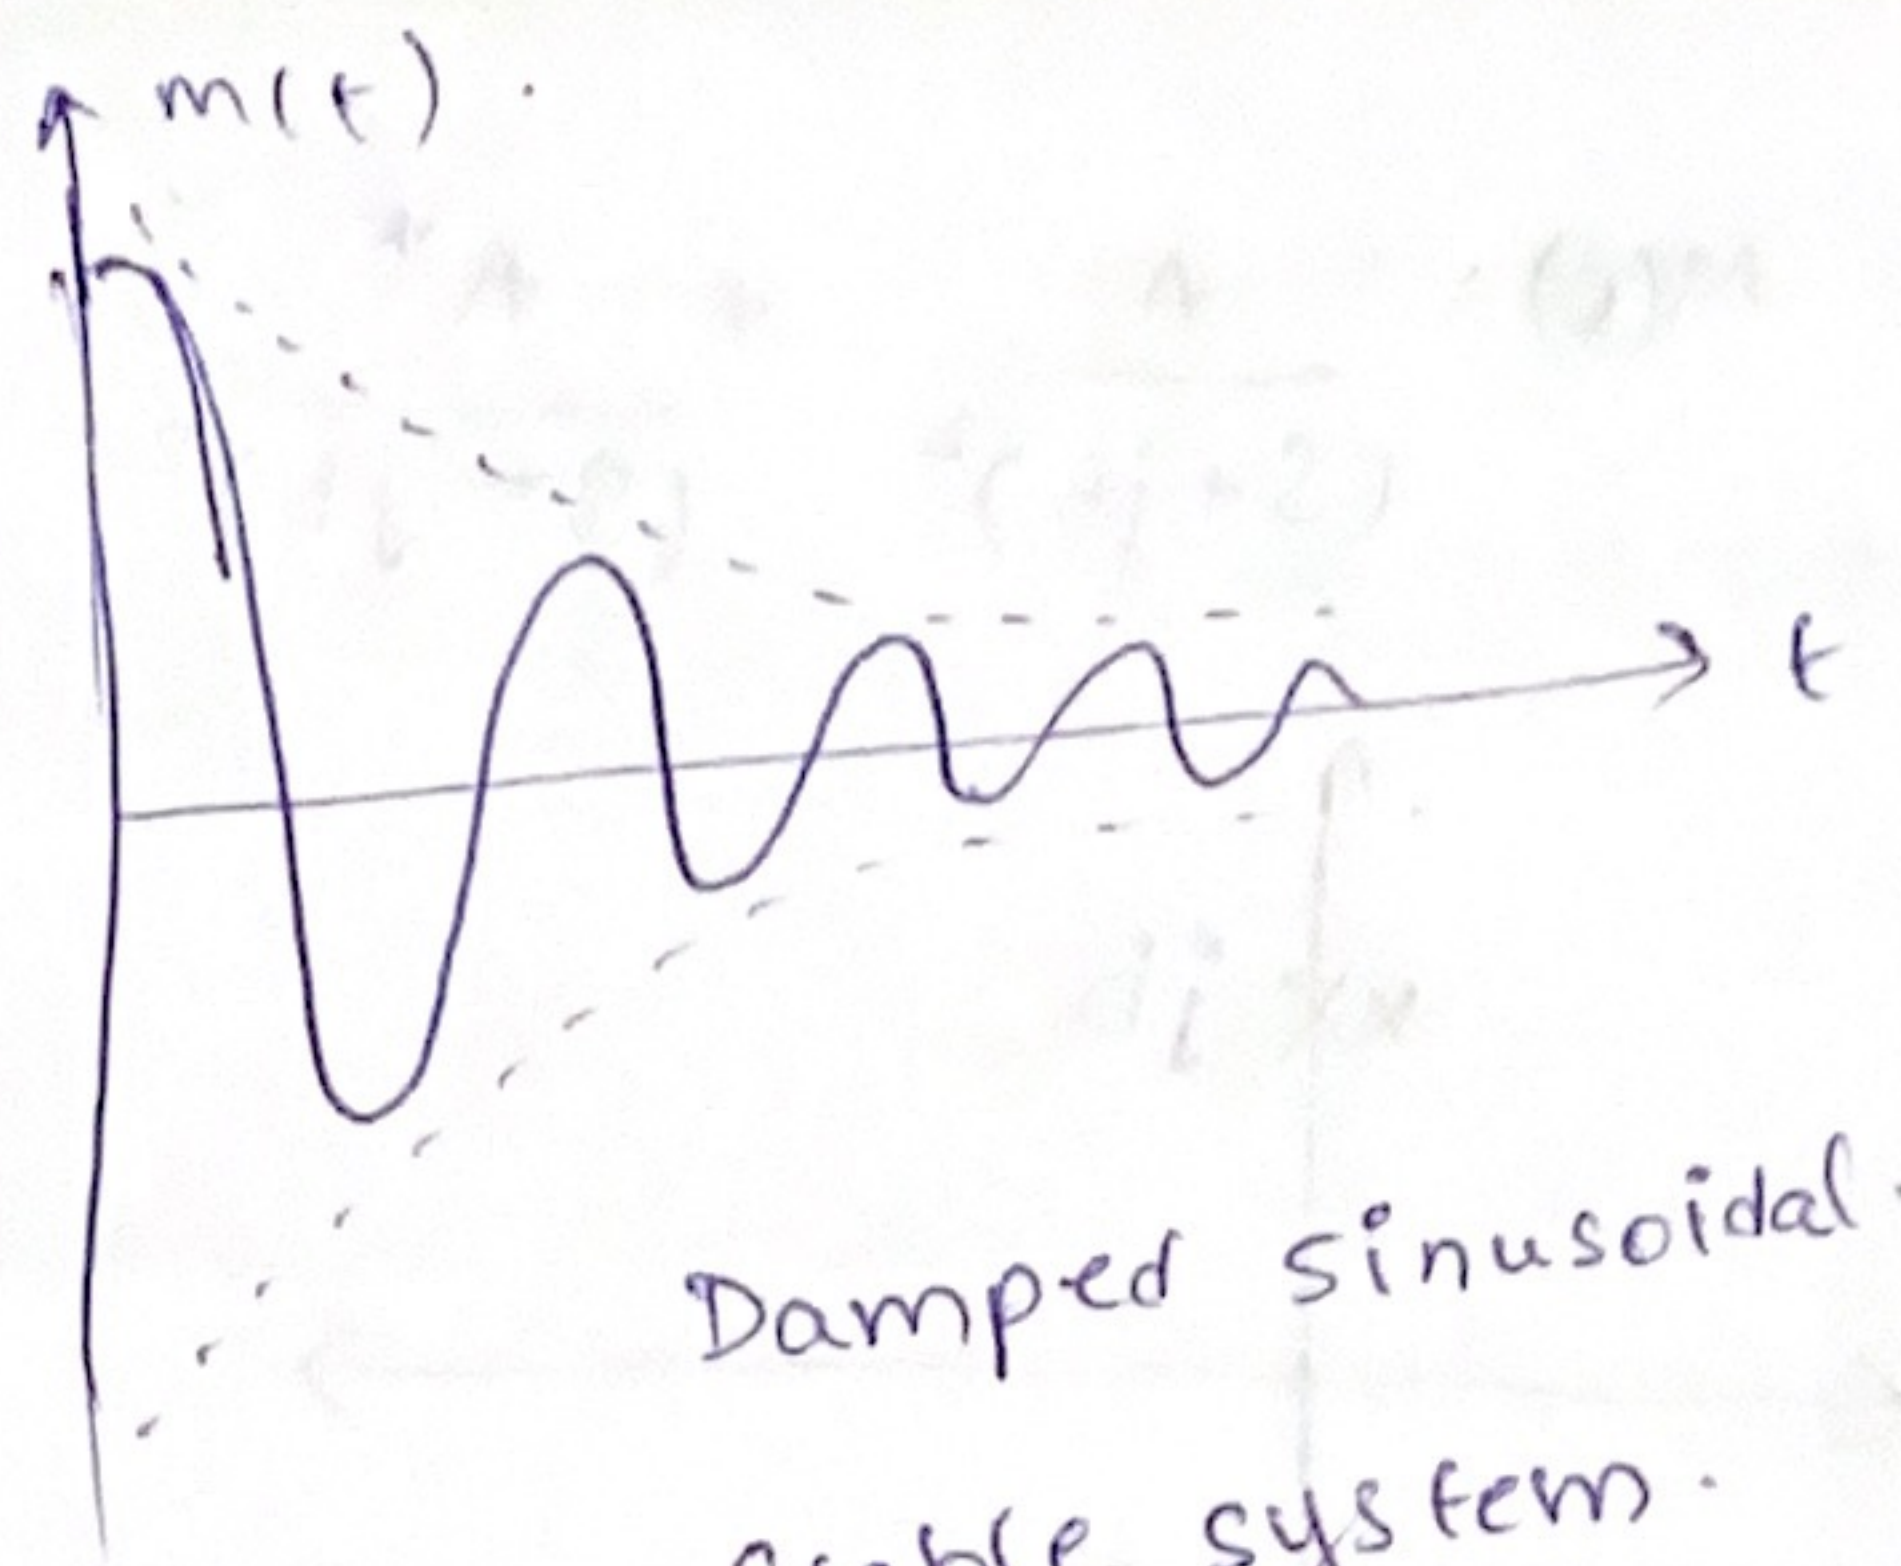 m(t).
t
Damped sinusoidal
system.